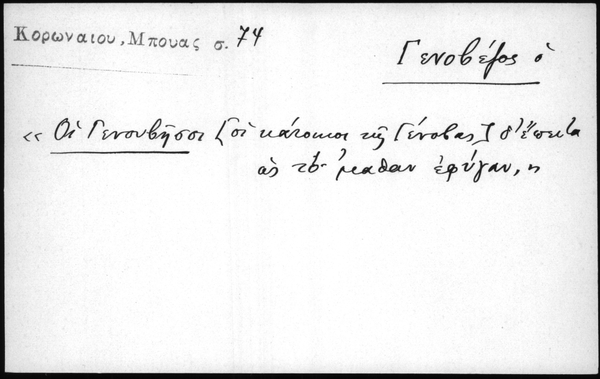 Κορωναιου, Μπουας σ. 74
Γενοβέζος ὁ
« Οἱ Γενουβῆσοι [οἱ κάτοικοι τῆς Γένοβας] δ' ἔπειτα
ὡς τὄμαθαν ἐφύγαν, »